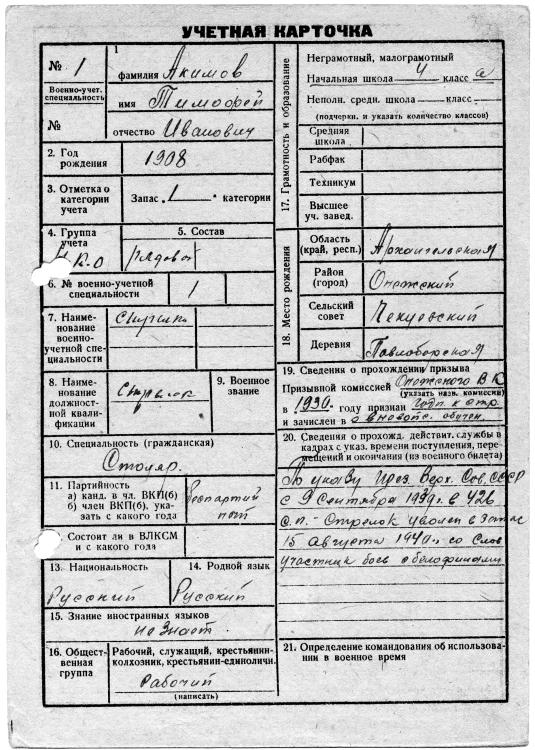 УЧЕТНАЯ КАРТОЧКА
№ 1
Военно-учет.
специальность
№
1
фамилия Акимов
имя Тимофей
отчество Иванович
2. Год
рождения
1908
3. Отметка о
категории
учета
Запас 1 категории
4. Группа
учета
К.О
5. Состав
рядовой
6. № военно-учетной
специальности
1
7. Наиме-
нование
военно-
учетной спе-
циальности
8. Наиме-
нование
должност-
ной квали-
фикации
Стрелок
9. Военное
звание
10. Специальность (гражданская)
Столяр.
11. Партийность
а) канд. в чл. ВКП(б)
б) член ВКП(б), ука-
зать с какого года
Беспартий
ный
Состоит ли в ВЛКСМ
и с какого года
13. Национальность
Русский
14. Родной язык
Русский
15. Знание иностранных языков
не знает.
16. Общест-
венная
группа
Рабочий, служащий, крестьянин-
колхозник, крестьянин-единоличн.
Рабочий
(написать)
17. Грамотность и образование
Неграмотный, малограмотный
Начальная школа 4 класса
Неполн. средн. школа класс
(подчеркн. и указать количество классов)
Средняя
школа
Рабфак
Техникум
Высшее
уч. завед.
18. Место рождения
Область
(край, респ.)
Архангельская
Район
(город)
Онежский
Сельский
совет
Чекуевский
Деревня
Павлоборская
19. Сведения о прохождении призыва
Призывной комиссией Онежского В К
(указать назв. комиссии)
в 1930. году признан годн. к стр.
и зачислен в обучен.
20. Сведения о прохожд. действит. службы в
кадрах с указ. времени поступления, пере-
мещений и окончания (из военного билета)
По указу През. Верх. Сов. СССР
с 9 Сентября 1939 г. в 426
с.п. - Стрелок уволен в Запас
15 Августа 1940 г. со Слов
участник боев с белофинами
21. Определение командования об использова-
нии в военное время